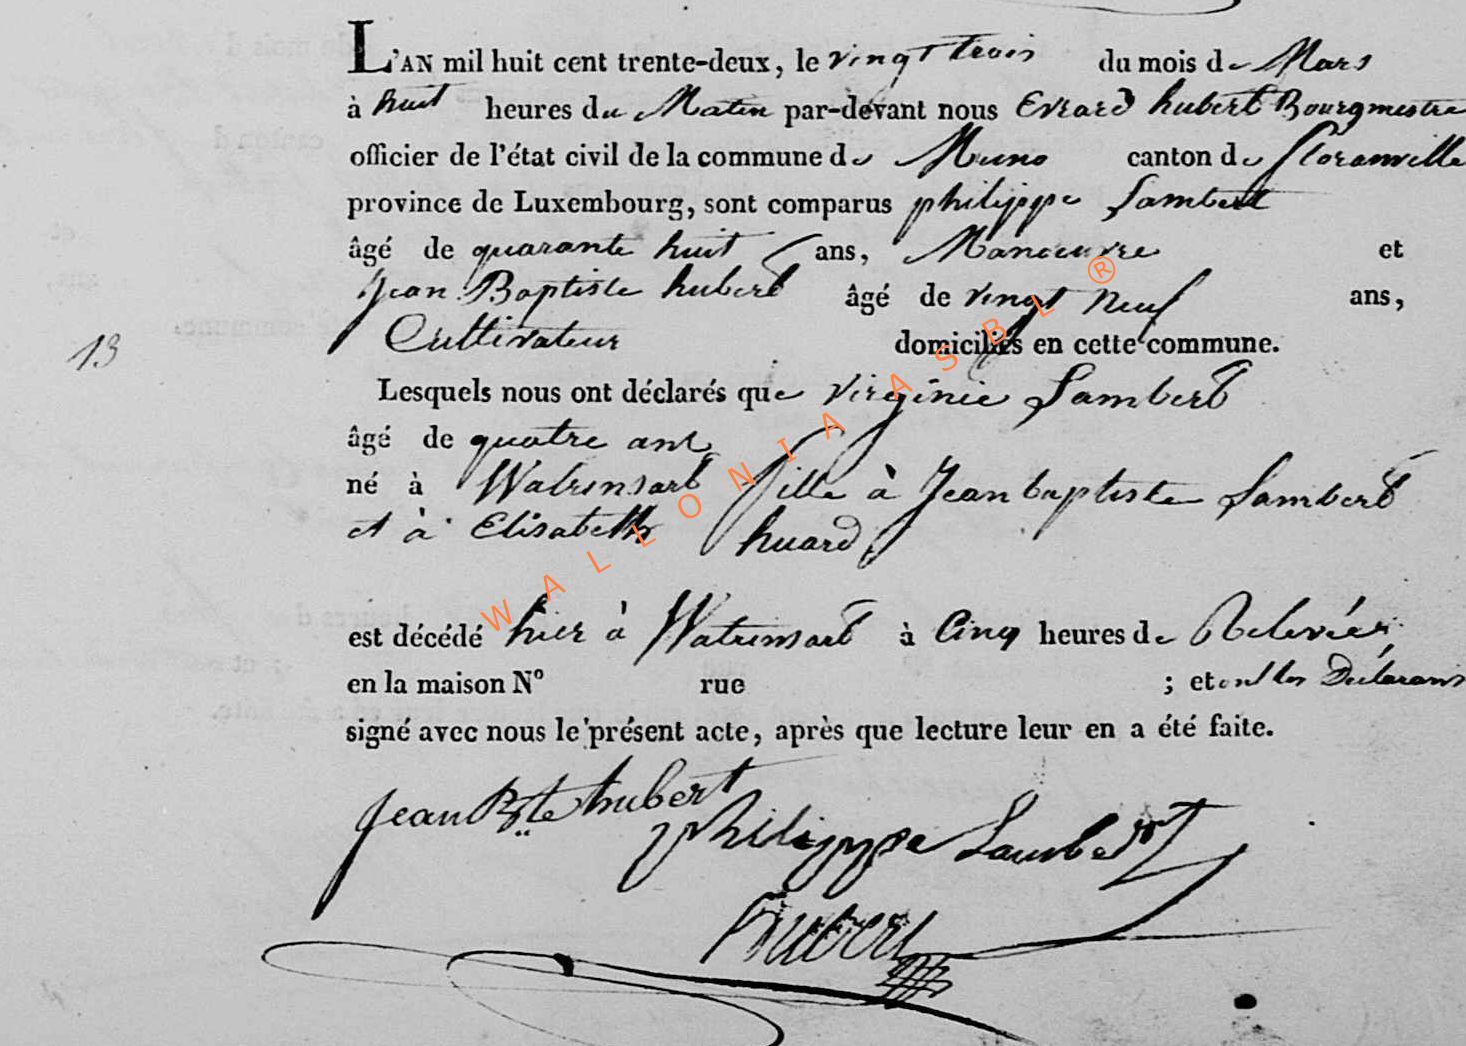 L'AN mil huit cent trente-deux, le vingt trois du mois de Mars
à huit heures du Matin par-devant nous Evrard hubert Bourgmestre
officier de l'état civil de la commune de Muno canton de floranville
province de Luxembourg, sont comparus philippe Lambert
âgé de quarante huit ans, Manoeuvre et
Jean Baptiste hubert âgé de vingt Neuf ans,
Cultivateur domiciliés en cette commune.
13
Lesquels nous ont déclarés que virginie Lambert
âgé de quatre ans
né à Watrinsart fille à Jean baptiste Lambert
et à Elisabeth huard
est décédé hier à Watrinsart à Cinq heures de Relevées
en la maison N° rue ; et ont les Déclarans
signé avec nous le présent acte, après que lecture leur en a été faite.
Jean Bte hubert
philippe Lambert
hubert
WALLONIA ASBL ®